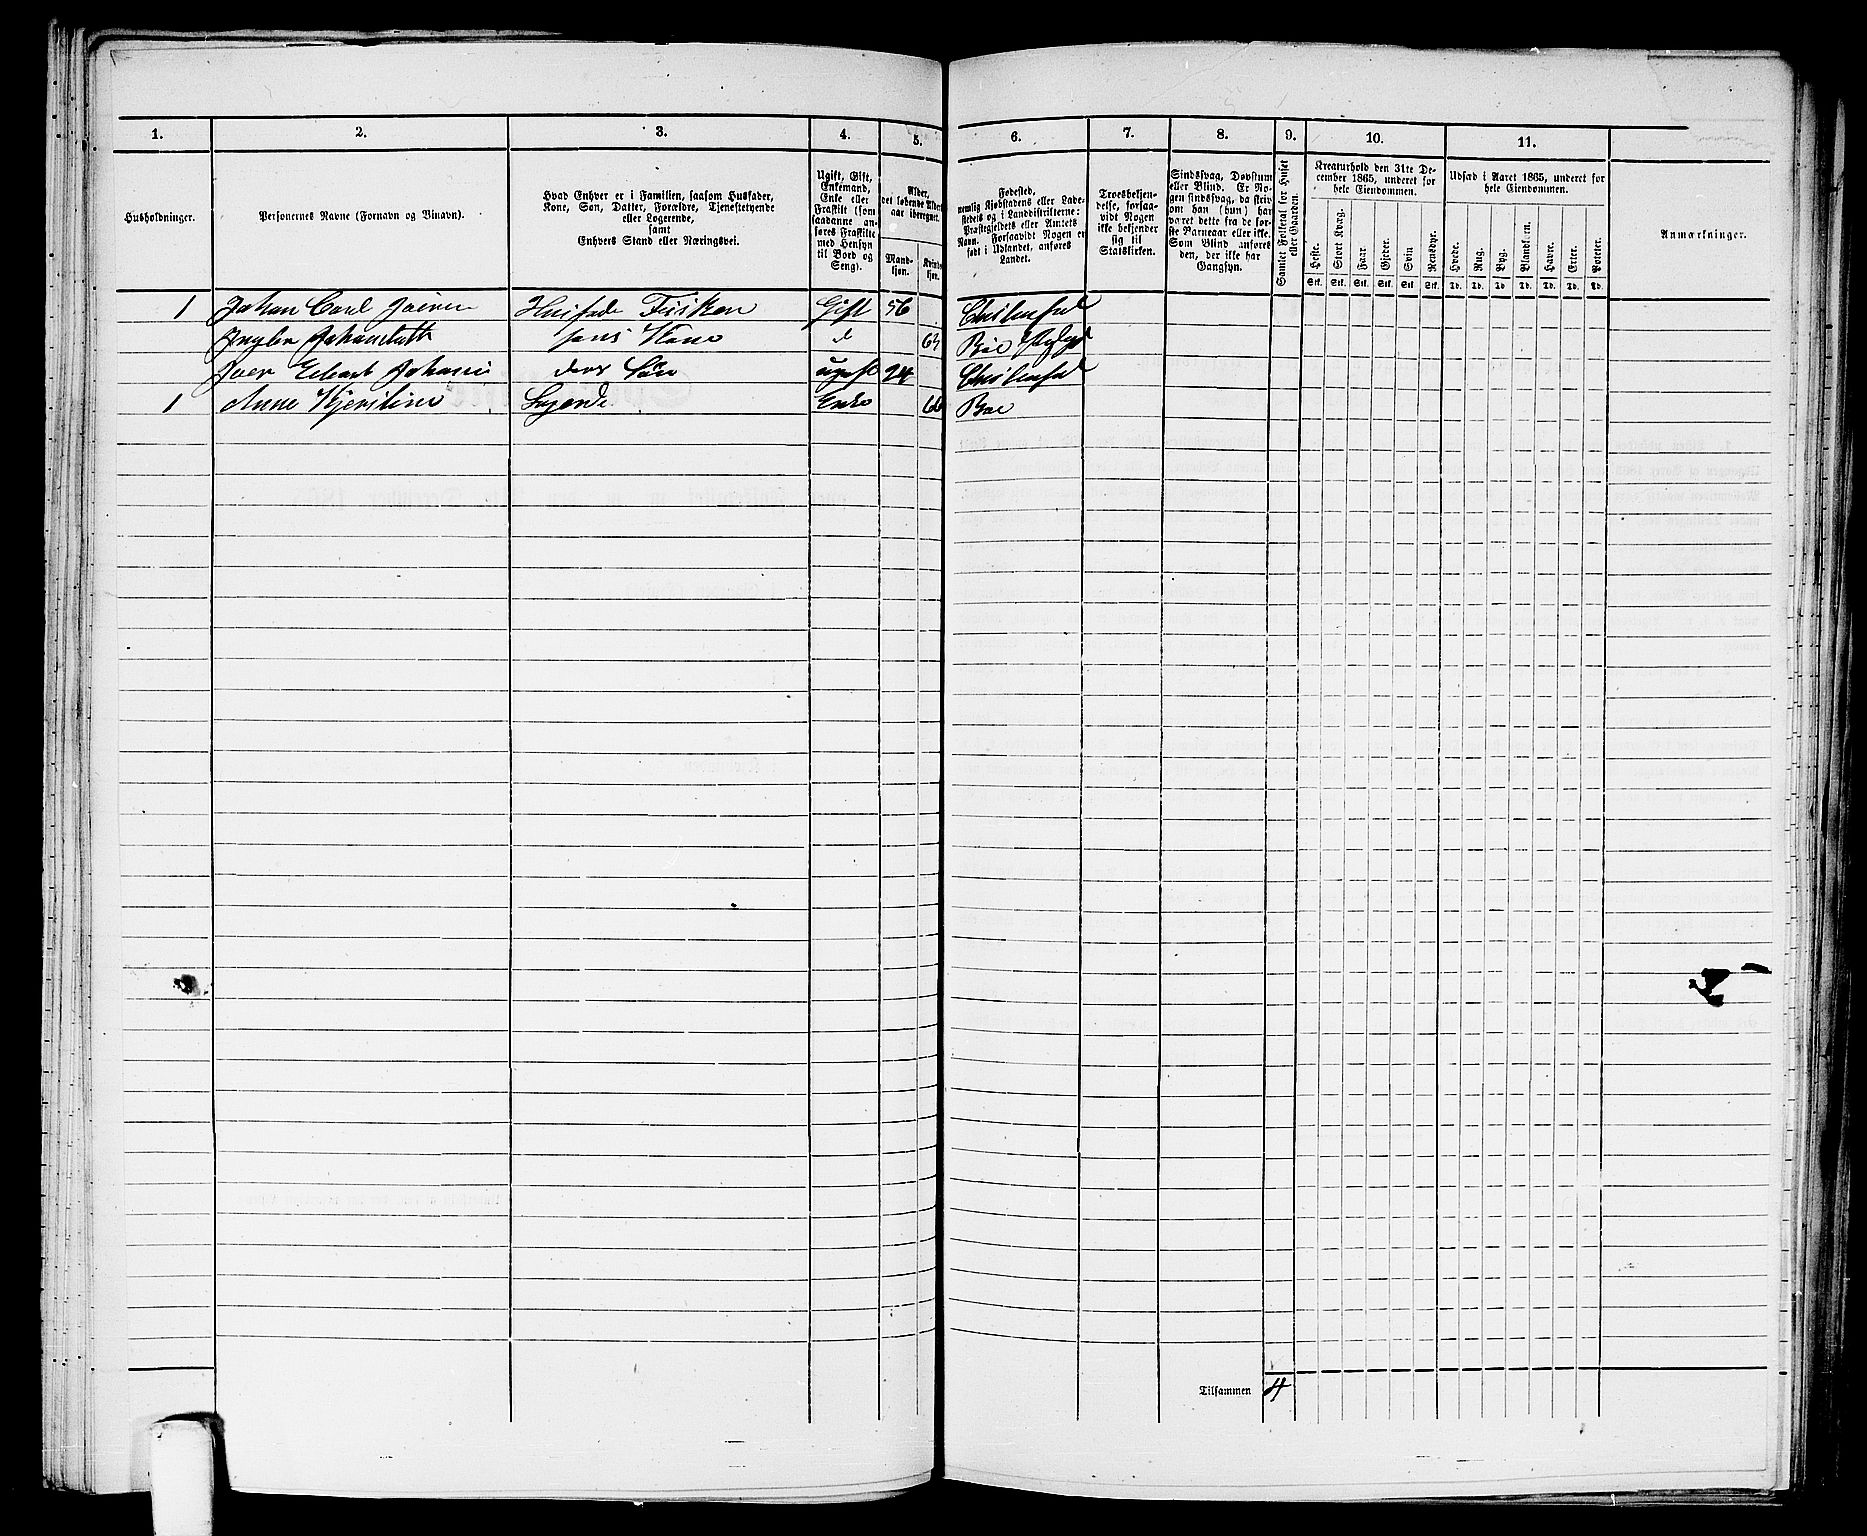 1. 2. 3. 4. 5. 6. 7. 8. 9. 10. 11.
Husholdninger.
Personernes Navne (Fornavn og Binavn).
Hvad Enhver er i Familien, saasom Husfader,
Kone, Søn, Datter, Forældre, Tjenestetyende
eller Logerende,
samt
Enhvers Stand eller Næringsvei.
Ugift, Gift,
Enkemand,
Enke eller
Fraskilt (som
saadanne an-
føres Fraskilte
med Hensyn
til Bord og
Seng).
Alder,
det løbende Alders-
aar iberegnet.
Mand-
kjøn.
Kvinde-
kjøn.
Fødested,
nemlig Kjøbstadens eller Lade-
stedets og i Landdistrikterne:
Præstegjeldets eller Amtets
Navn. Forsaavidt Nogen er
født i Udlandet, anføres
Landet.
Troesbekjen-
delse, forsaa-
vidt Nogen
ikke bekjender
sig til
Statskirken.
Sindssvag, Døvstum
eller Blind. Er No-
gen sindssvag, da skriv
om han (hun) har
været dette fra de før-
ste Barneaar eller ikke.
Som Blind anføres
den, der ikke har
Gangsyn.
Samlet Folketal for Huset
eller Gaarden.
Kreaturhold den 31te De-
cember 1865, underet for
hele Eiendommen.
Heste. Stort Kvæg. Faar. Gjeder. Svin Rensdyr.
Stk. Stk. Stk. Stk. Stk. Stk.
Udsæd i Aaret 1865, underet for
hele Eiendommen.
Hvede. Rug. Byg. Blandkorn. Havre. Erter. Poteter.
Td. Td. Td Td. Td. Td. Td.
Anmærkninger.
1 Johan Carl Husfader Gift 56
Johansdatter hans Kone d 63 Boe
Iver Johans deres Søn ugift 24
1 Anne Kjerstine Logerende Enke 66 Boe
Tilsammen 4